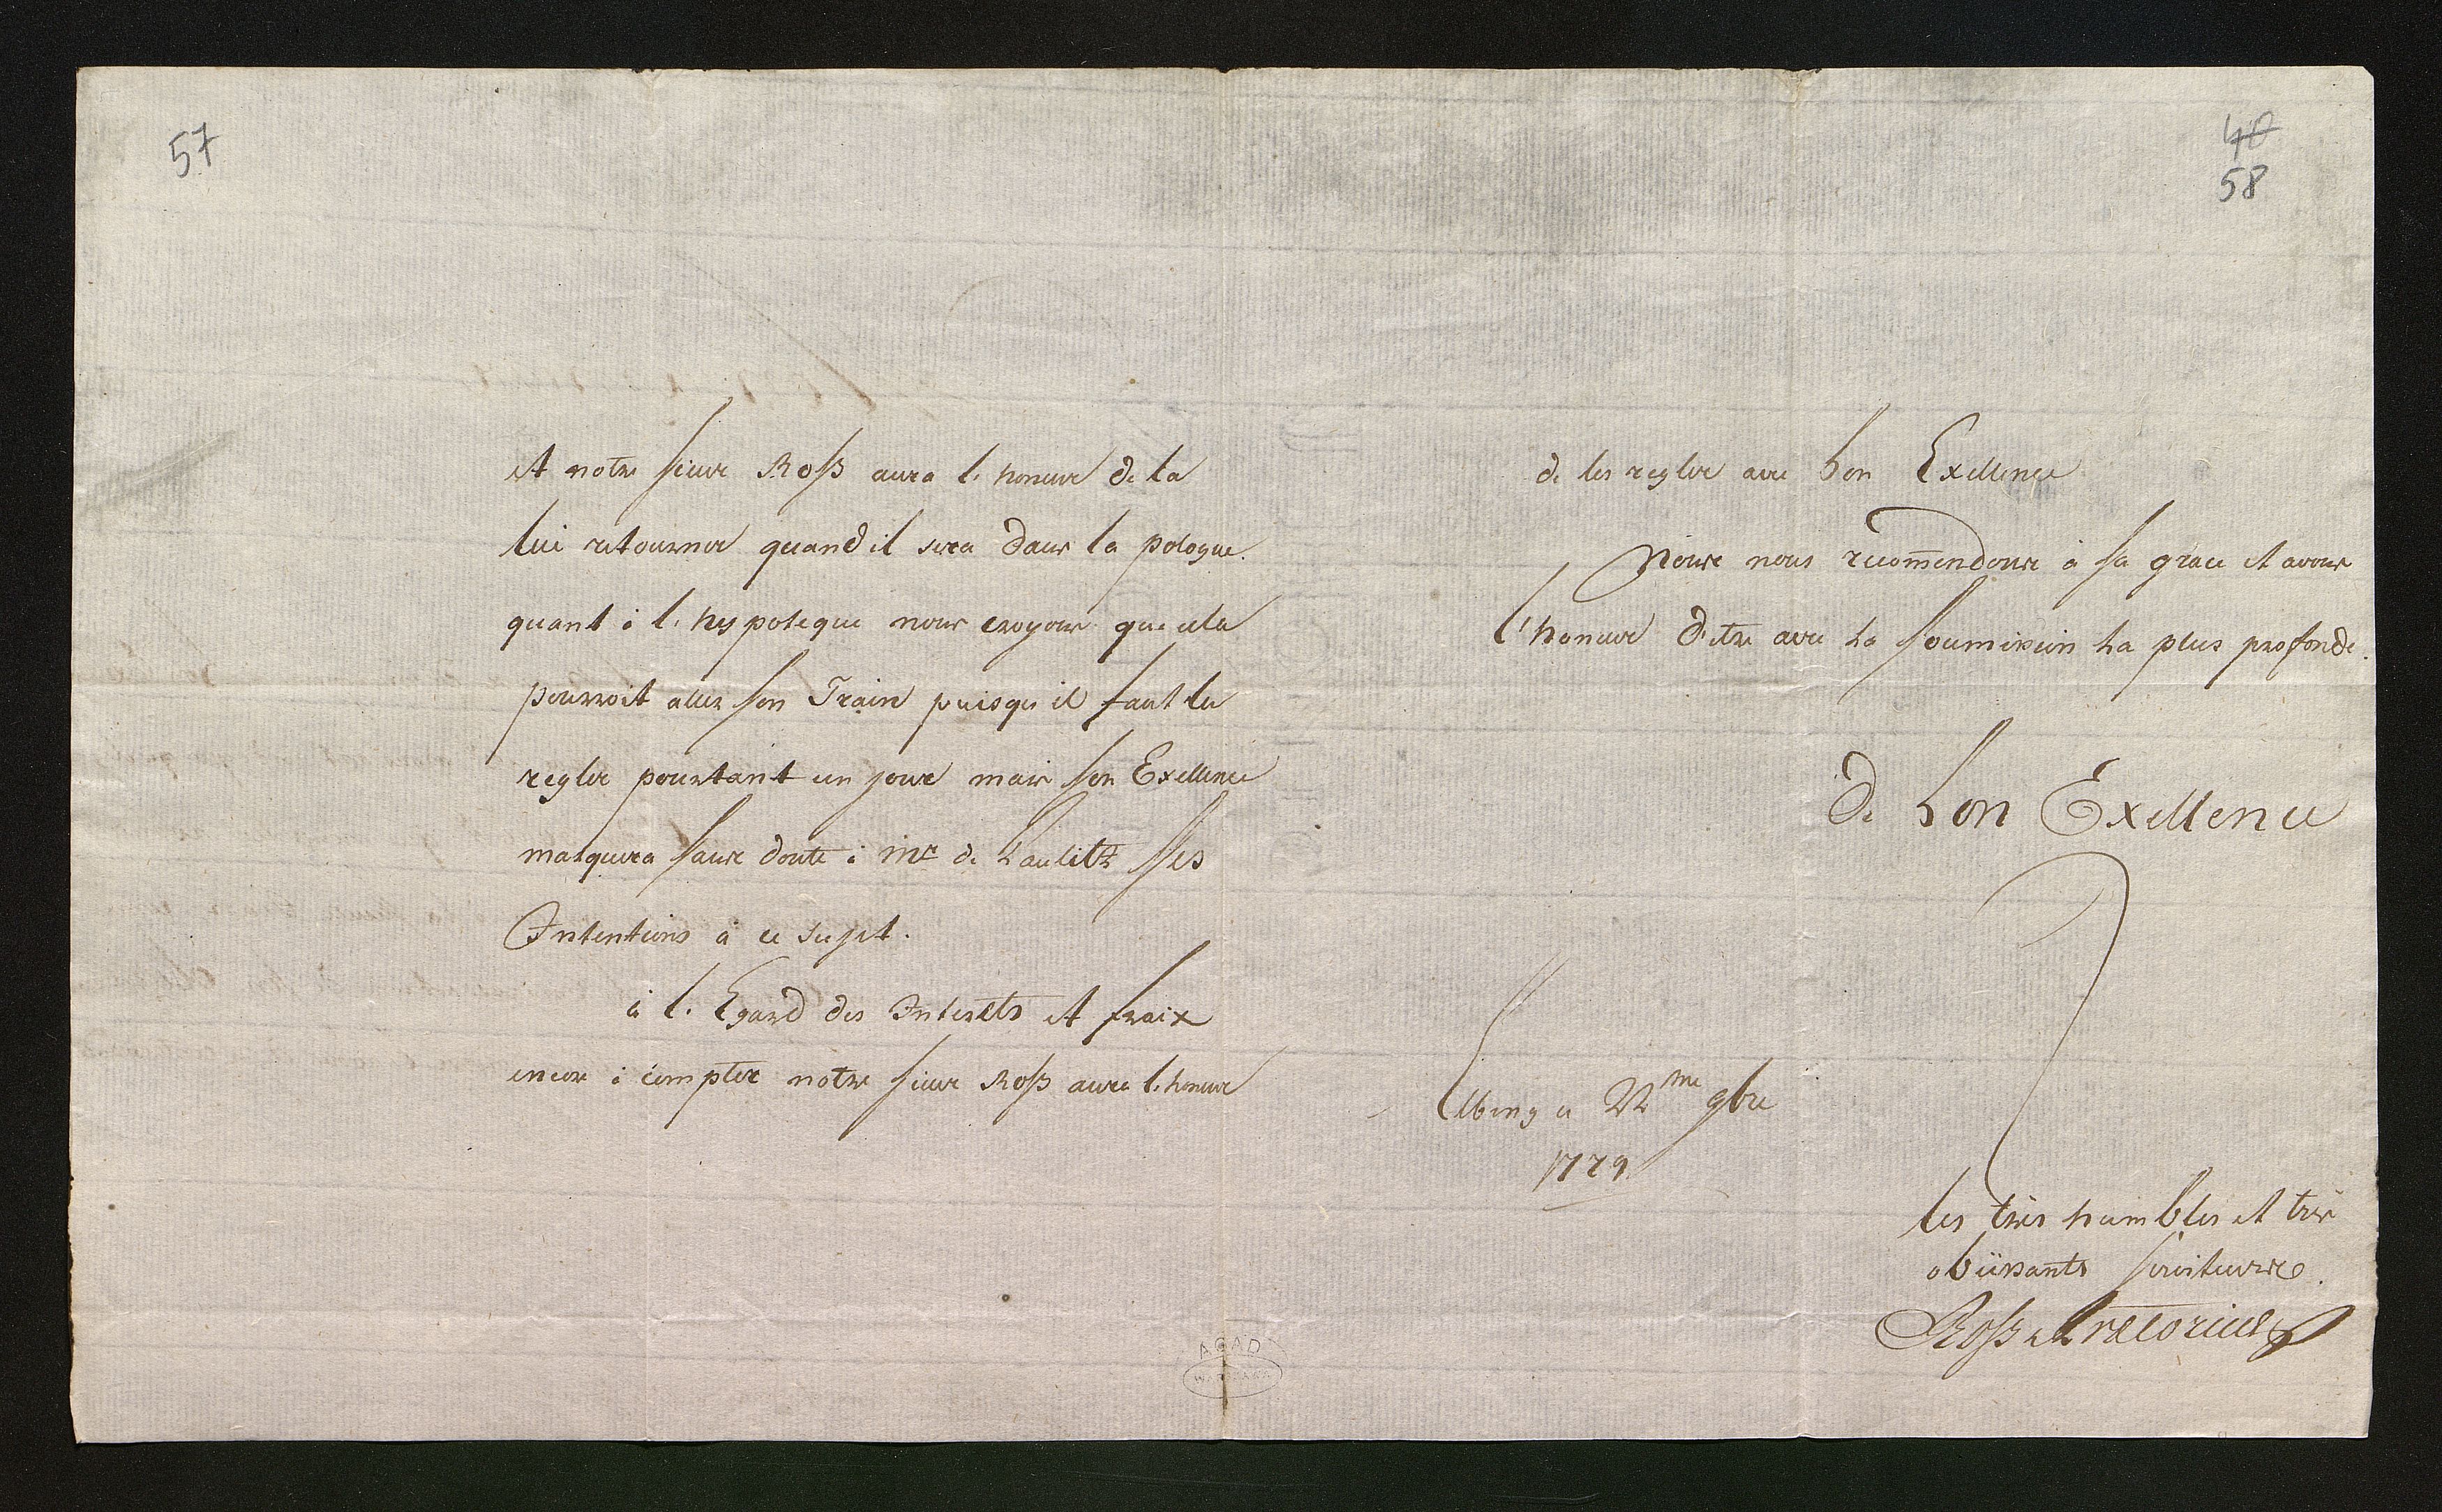 57
et notre sieur Roß aura l'honeur de la
lui retourner quand il sera dans la pologne.
quant à l'hypoteque nous croyons que cela
pourroit aller son Train puisqu'il faut la
regler pourtant un jour mais son Exellence
marquera sans doute à Mr de ses
Intentions à ce sujet.
à l'Egard des Interets et fraix
encore à compter notre sieur Roß aura l'honeur
40
58
de les regler avec Son Exellence
Nous nous recom̄endons à sa grace et avons
l'honeur d'etre avec la soumission la plus profonde.
de Son Exellence
Elbing ce 22me 9bre
1779
les très humbles et très
obeissants serviteurs.
Roß et Pretorius
AGAD
WARSZAWA